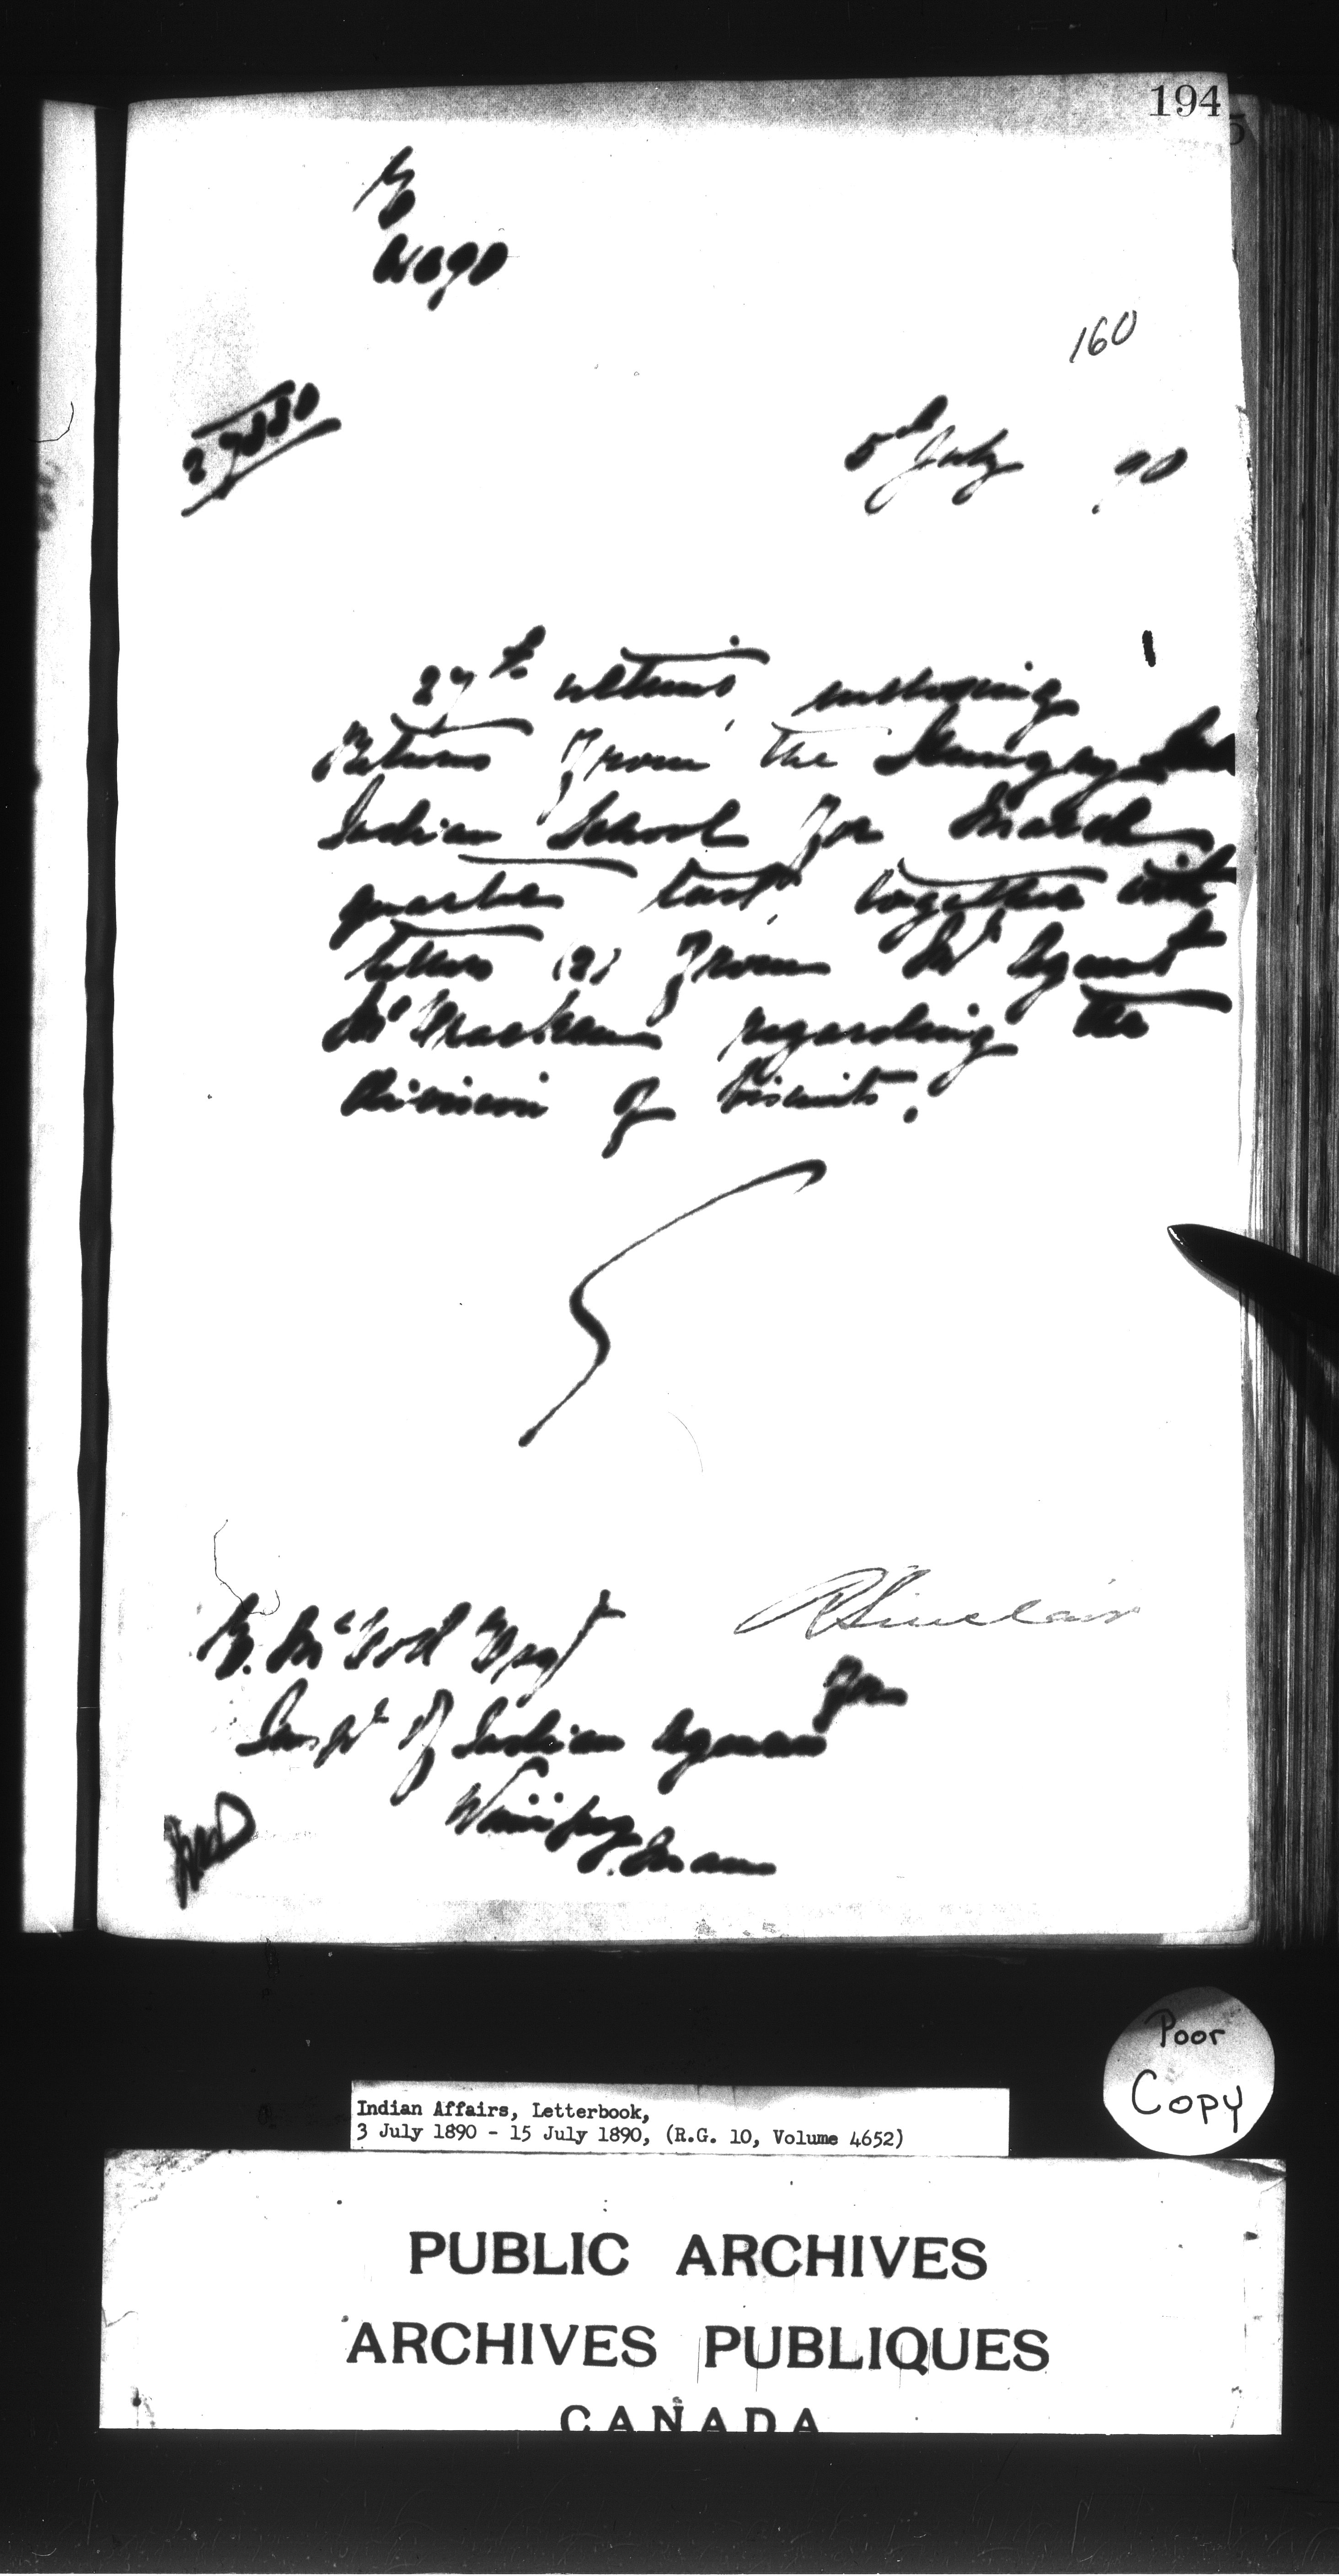 194
160
5th July 90
27th ultimo, enclosing
Returns from the Hungry Hall
Indian School for March
quarter last, together with
letters (2) from Mr Agent
McCracken regarding the
division of biscuits.
R Sinclair
for
E. McColl Esqr
Inspr of Indian Agencies
Winnipeg
Man
Poor
Copy
Indian Affairs, Letterbook,
3 July 1890 - 15 July 1890, (R.G. 10, Volume 4652)
PUBLIC ARCHIVES
ARCHIVES PUBLIQUES
CANADA